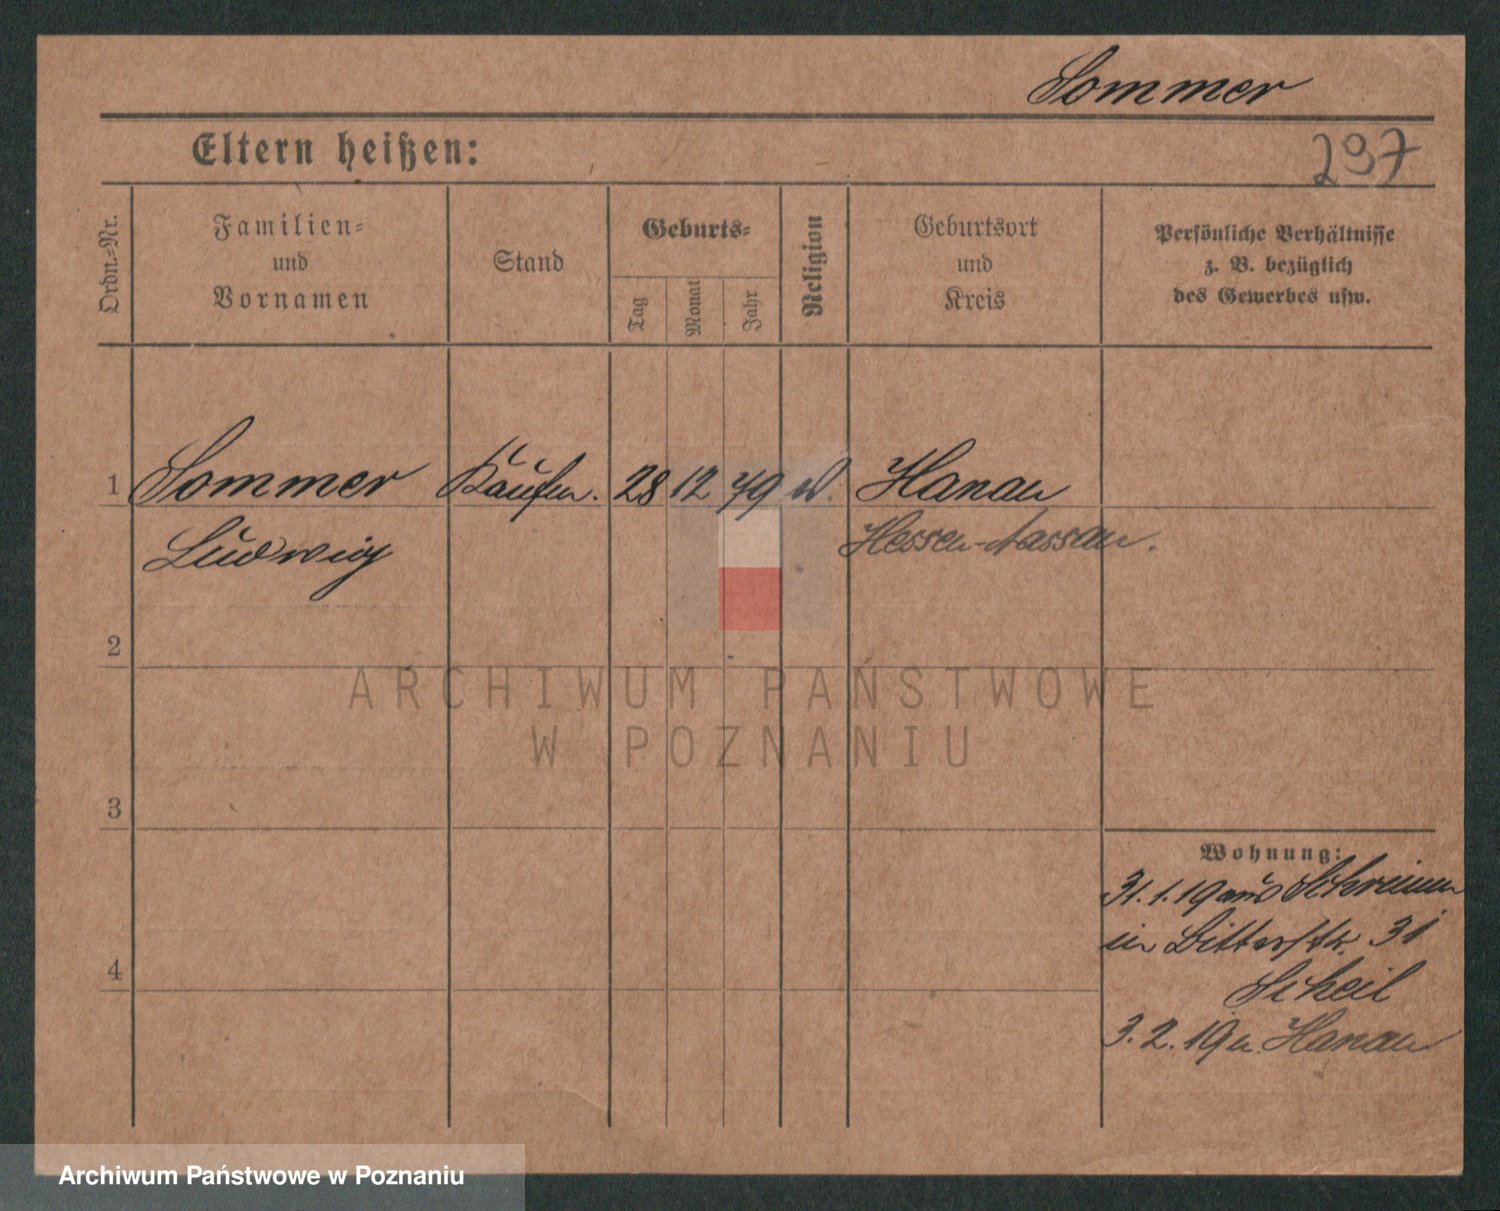 Sommer
Eltern heißen:
297
Ordn.-Nr.
Familien-
und
Vornamen
Stand
Geburts-
Tag
Monat
Jahr
Religion
Geburtsort
und
Kreis
Persönliche Verhältnisse
z. B. bezüglich
des Gewerbes usw.
1 Sommer Kaufm. 28 12 79 Hanau
Ludwig Hessen-Nassau.
2
3
4
Wohnung:
31.1.19 aus
in Bitterstr. 31
Scheil
3.2.19 n. Hanau
ARCHIWUM PAŃSTWOWE
W POZNANIU
Archiwum Państwowe w Poznaniu